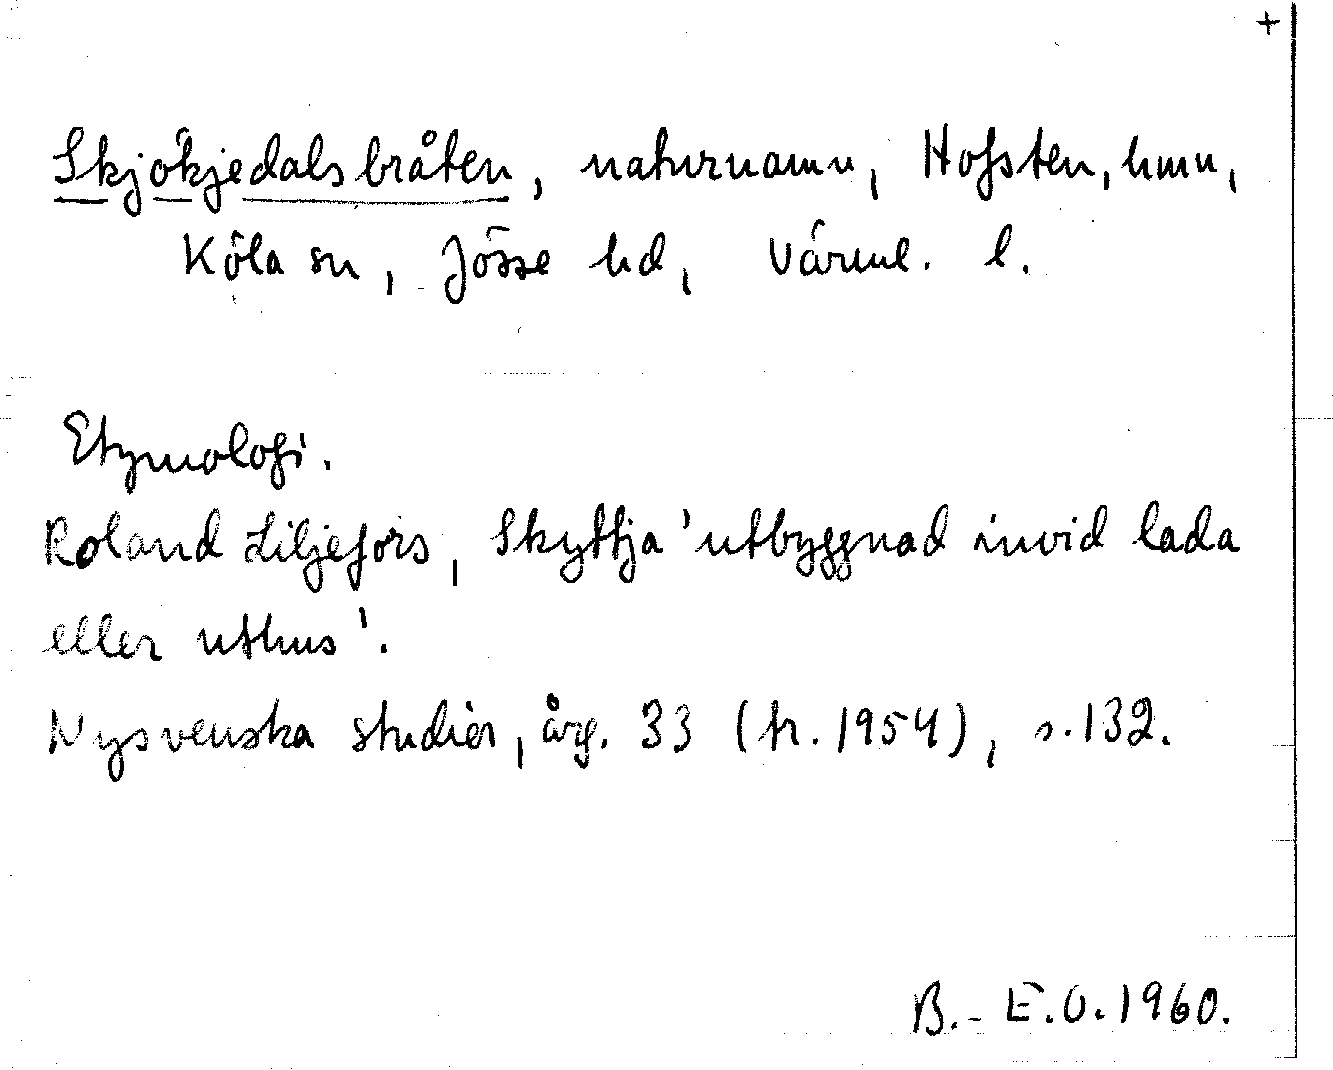 +
Skjökjedalsbråten, naturnamn, Hofsten, hmn,
Köla sn, Jösse hd, Värml. l.
Etymologi.
Roland Liljefors, Skyttja 'utbyggnad invid lada
eller uthus'.
Nysvenska studier, årg. 33 (tr. 1954), s. 132.
B.-E.O. 1960.